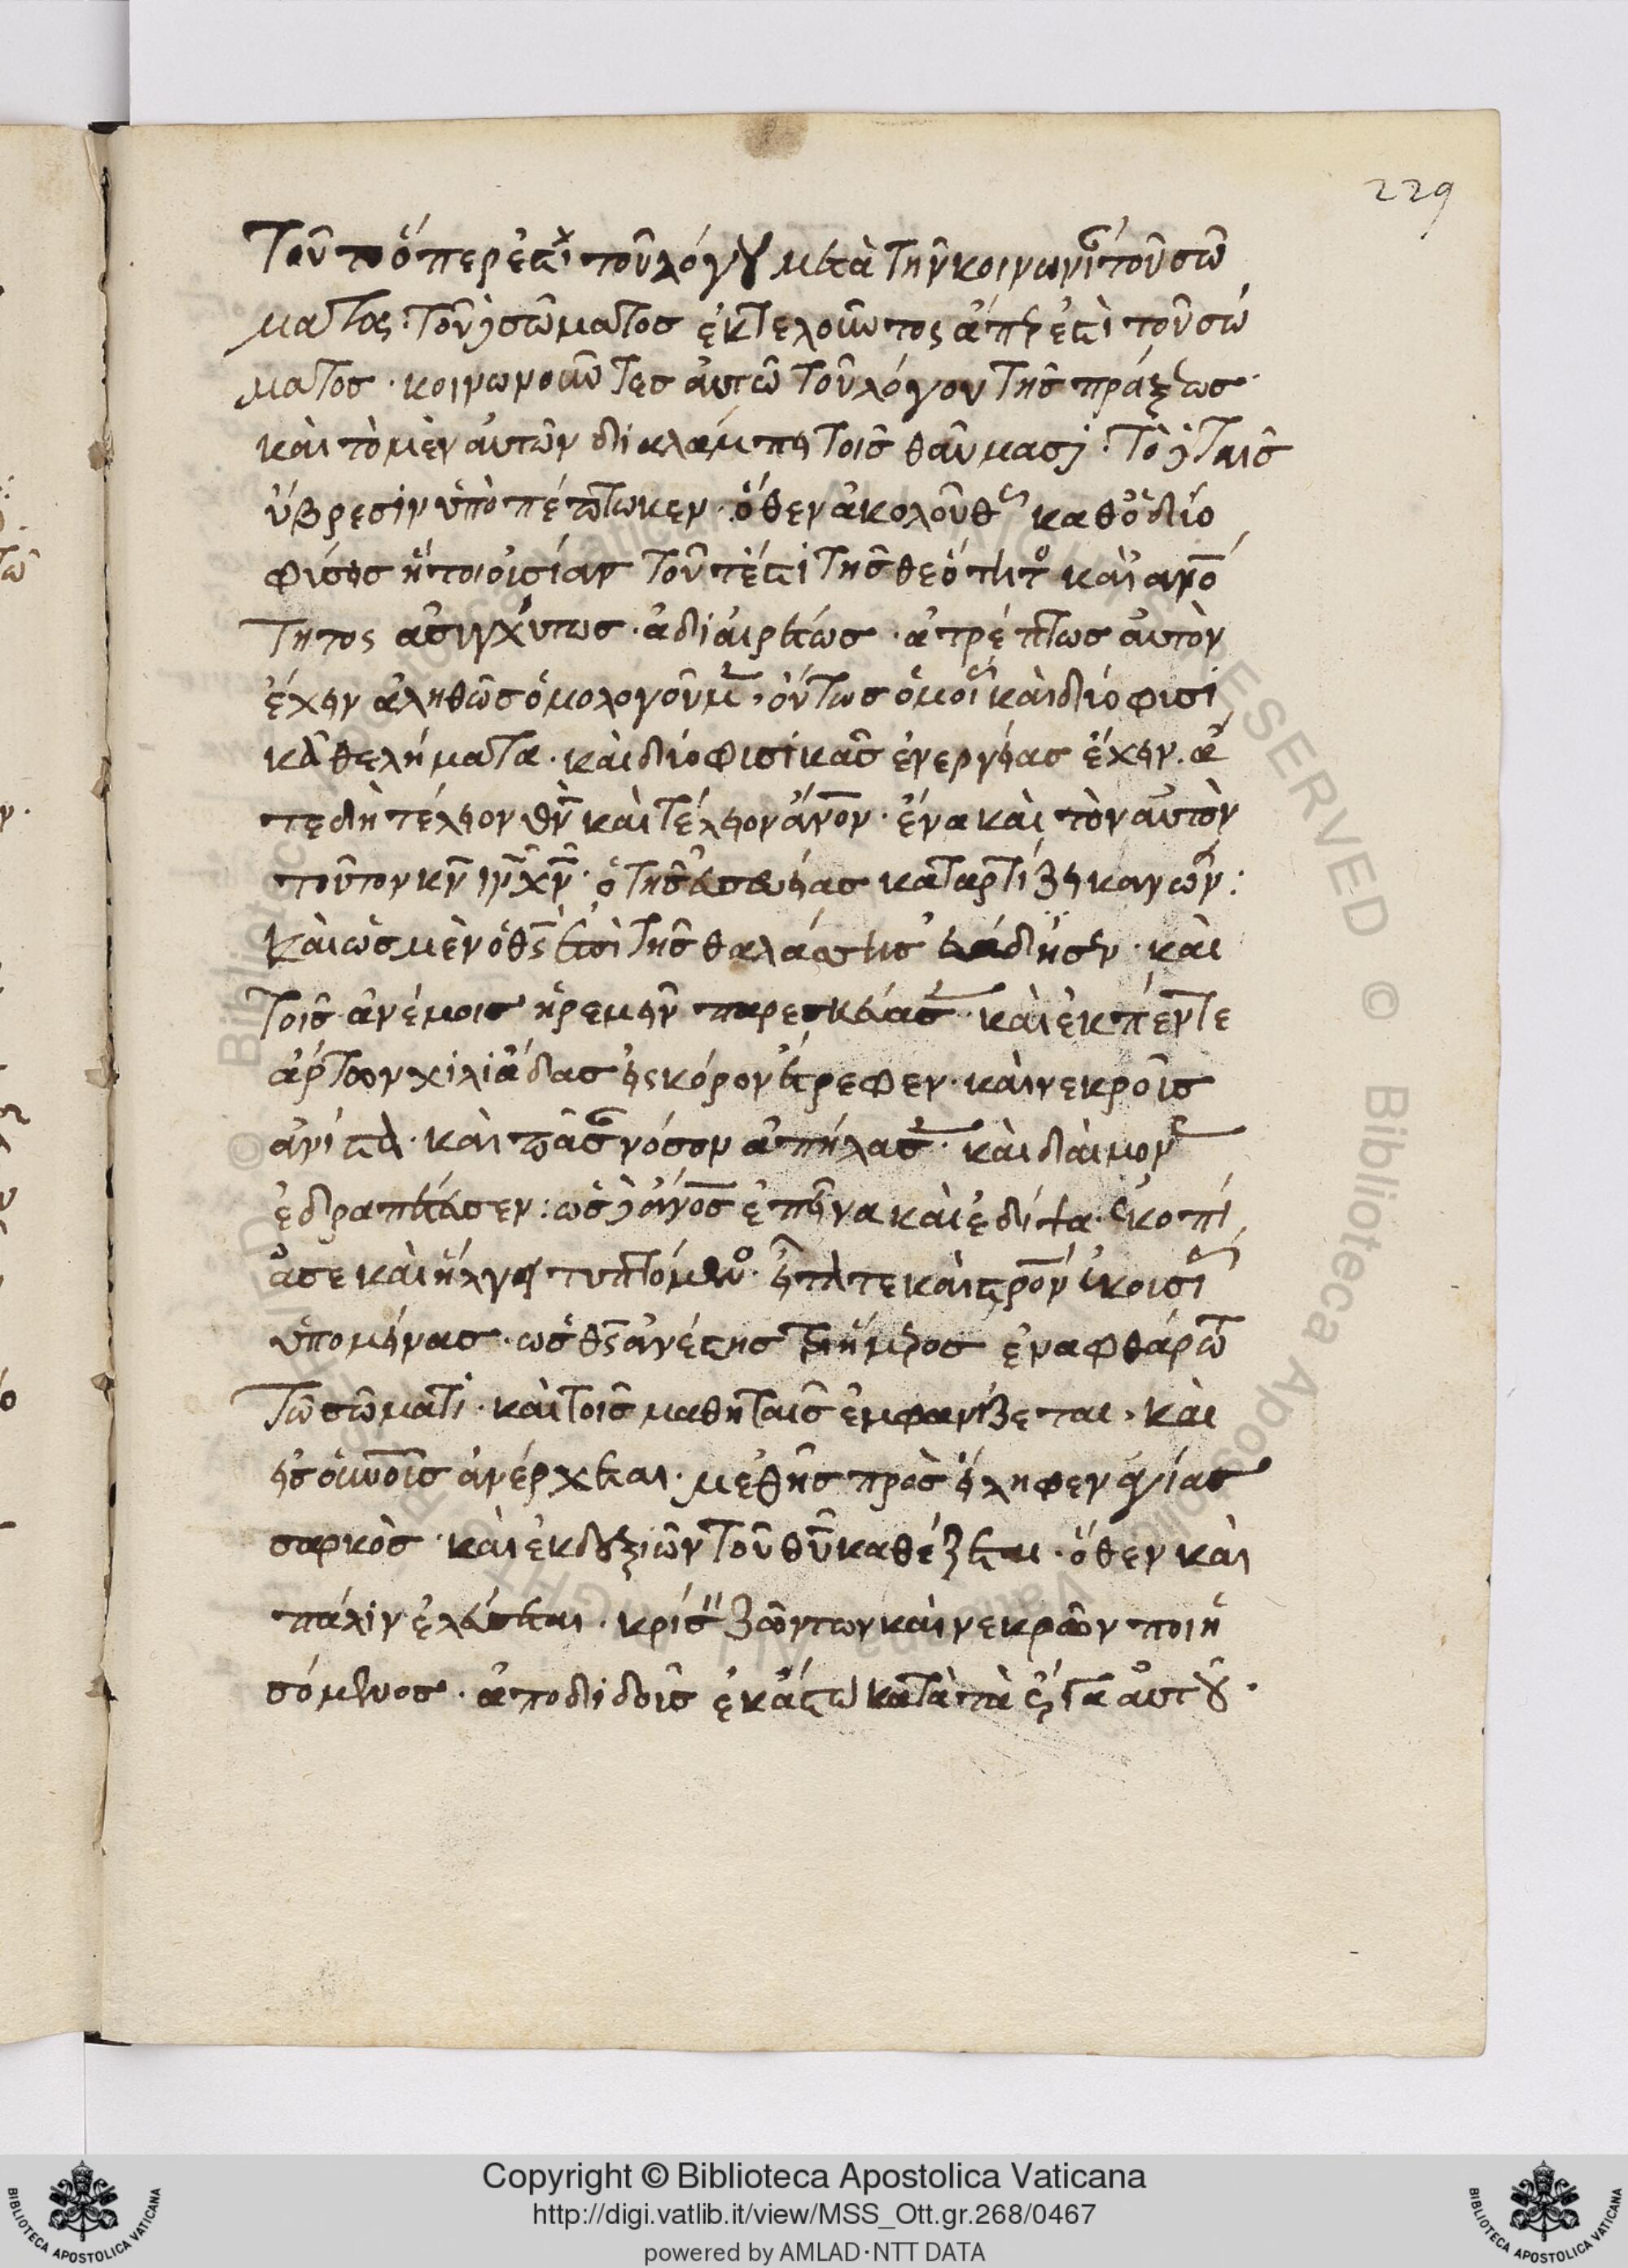 229
Τοῦτο ὅπερ ἐστὶ τοῦ λόγου μετὰ τὴν κοινωνί τοῦ σώ
ματος· τοῦ δὲ σώματος ἐκτελοῦντος ἅπερ ἐστὶ τοῦ σώ
ματος· κοινωνοῦντες αὐτῶ τοῦ λόγου τῆς πράξεως·
καὶ τὸ μὲν αὐτῶν διαλάμπει τοῖς θαύμασι· τὸ δὲ ταῖς
ὕβρεσιν ὑπὸ πέπτωκεν· ὅθεν ἀκολούθως καθὸ δύο
φύσεις ἤτοι οὐσίας τουτέστι τῆς θεότητος καὶ ἀνό
τητος ἀσυγχύτως· ἀδιαιρέτως· ἀτρέπτως αὐτὸν
ἔχειν ἀληθῶς ὁμολογοῦμεν, οὕτως ὁμοίως καὶ δύο φυσι
κὰ θελήματα· καὶ δύο φυσικὰς ἐνεργείας ἔχειν· ἅ
τε δὴ τέλειον θν̅ καὶ τέλειον ἄνον· ἕνα καὶ τὸν αὐτὸν
τοῦτον κν̅ ιν̅ χν̅· ὁ τῆς εὐσεβείας καταρτίζει κανών:
Καὶ ὡς μὲν ὁ θς̅ ἐπὶ τῆς θαλάσσης ἐβάδησεν· καὶ
τοῖς ἀνέμοις ἠρεμεῖν παρεσκεύασε· καὶ ἐκ πέντε
ἄρτων χιλιάδας εἰς κόρον ἔτρεφεν· καὶ νεκροῖς
ἀνίστα· καὶ πᾶσαν νόσον ἀπήλασε· καὶ δαίμον
ἐδραπέτευσεν: ὡς δὲ ἄνος ἐπείνα καὶ ἐδίψα· ἐκοπί
ασε καὶ ἤλγει τυπτόμενος· ἥπτετε καὶ στρον ἑκουσί
ὑπομείνας· ὡς θς̅ ἀνέστης τριήμερος ἐν ἀφθάρτω
τῶ σώματι· καὶ τοῖς μαθηταῖς ἐμφανίζεται· καὶ
εἰς οὐνοῖς ἀνέρχεται· μεθ' ἧς προσείληφεν ἁγίας
σαρκὸς· καὶ ἐκ δεξιῶν τοῦ θυ̅ καθέζεται· ὅθεν καὶ
πάλιν ἐλεύσεται· κρίσιν ζώντων καὶ νεκρῶν ποιη
σόμενος· ἀποδιδοὺς ἑκάστω κατὰ τὰ ἔργα αὐτοῦ·
Copyright © Biblioteca Apostolica Vaticana
http://digi.vatlib.it/view/MSS_Ott.gr.268/0467
powered by AMLAD·NTT DATA